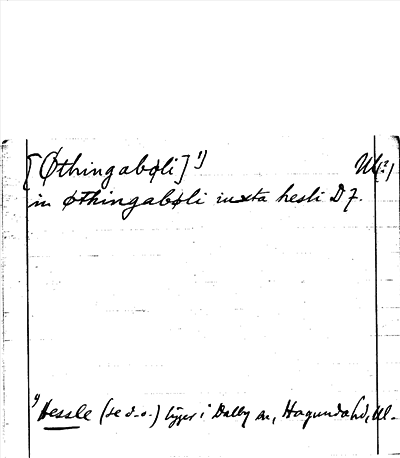 [Øthingabøli] ¹) Ul(?)
in øthingabøli iuxta hesli D 7.
¹) Hessle (se d.o.) ligger i Dalby sn, Hagunda hd, Ul.